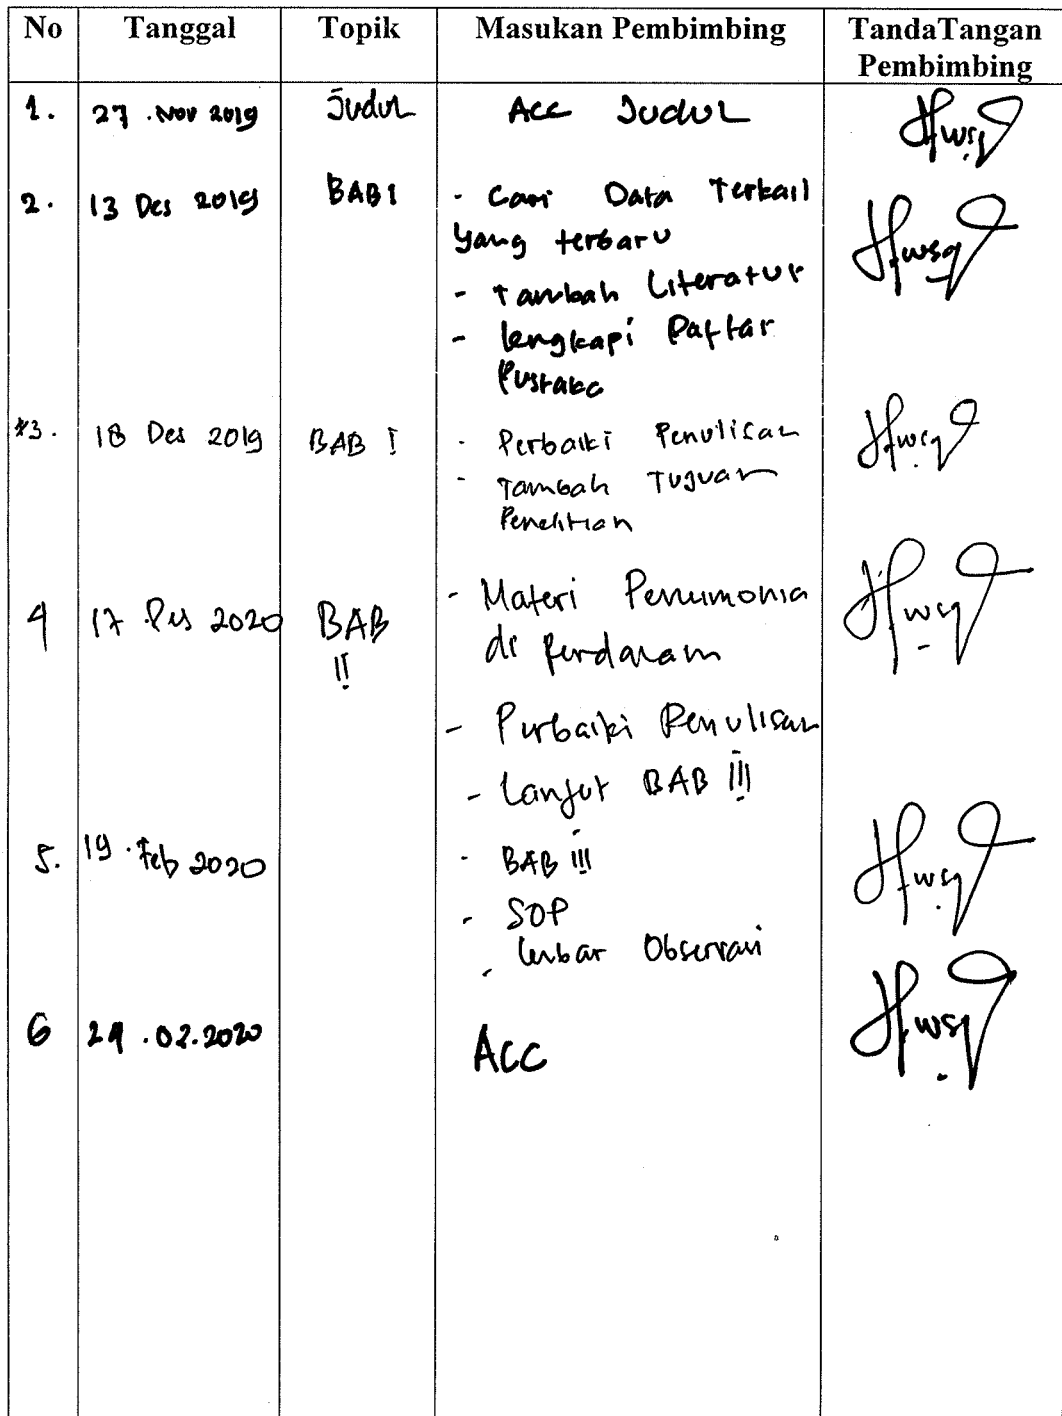 No Tanggal Topik Masukan Pembimbing TandaTangan
Pembimbing
1. 27 . Nov 2019 Judul Acc Judul
2. 13 Des 2019 BAB 1 - Cari Data Terkait
yang terbaru
- Tambah Literatur
- lengkapi Daftar
Pustaka
3. 18 Des 2019 BAB I - Perbaiki Penulisan
- Tambah Tujuan
Penelitian
4 17 2020 BAB - Materi
II di
- Perbaiki Penulisan
- Lanjut BAB III
5. 19 . Feb 2020 - BAB III
- SOP
- Observasi
6 24 . 02 . 2020 ACC